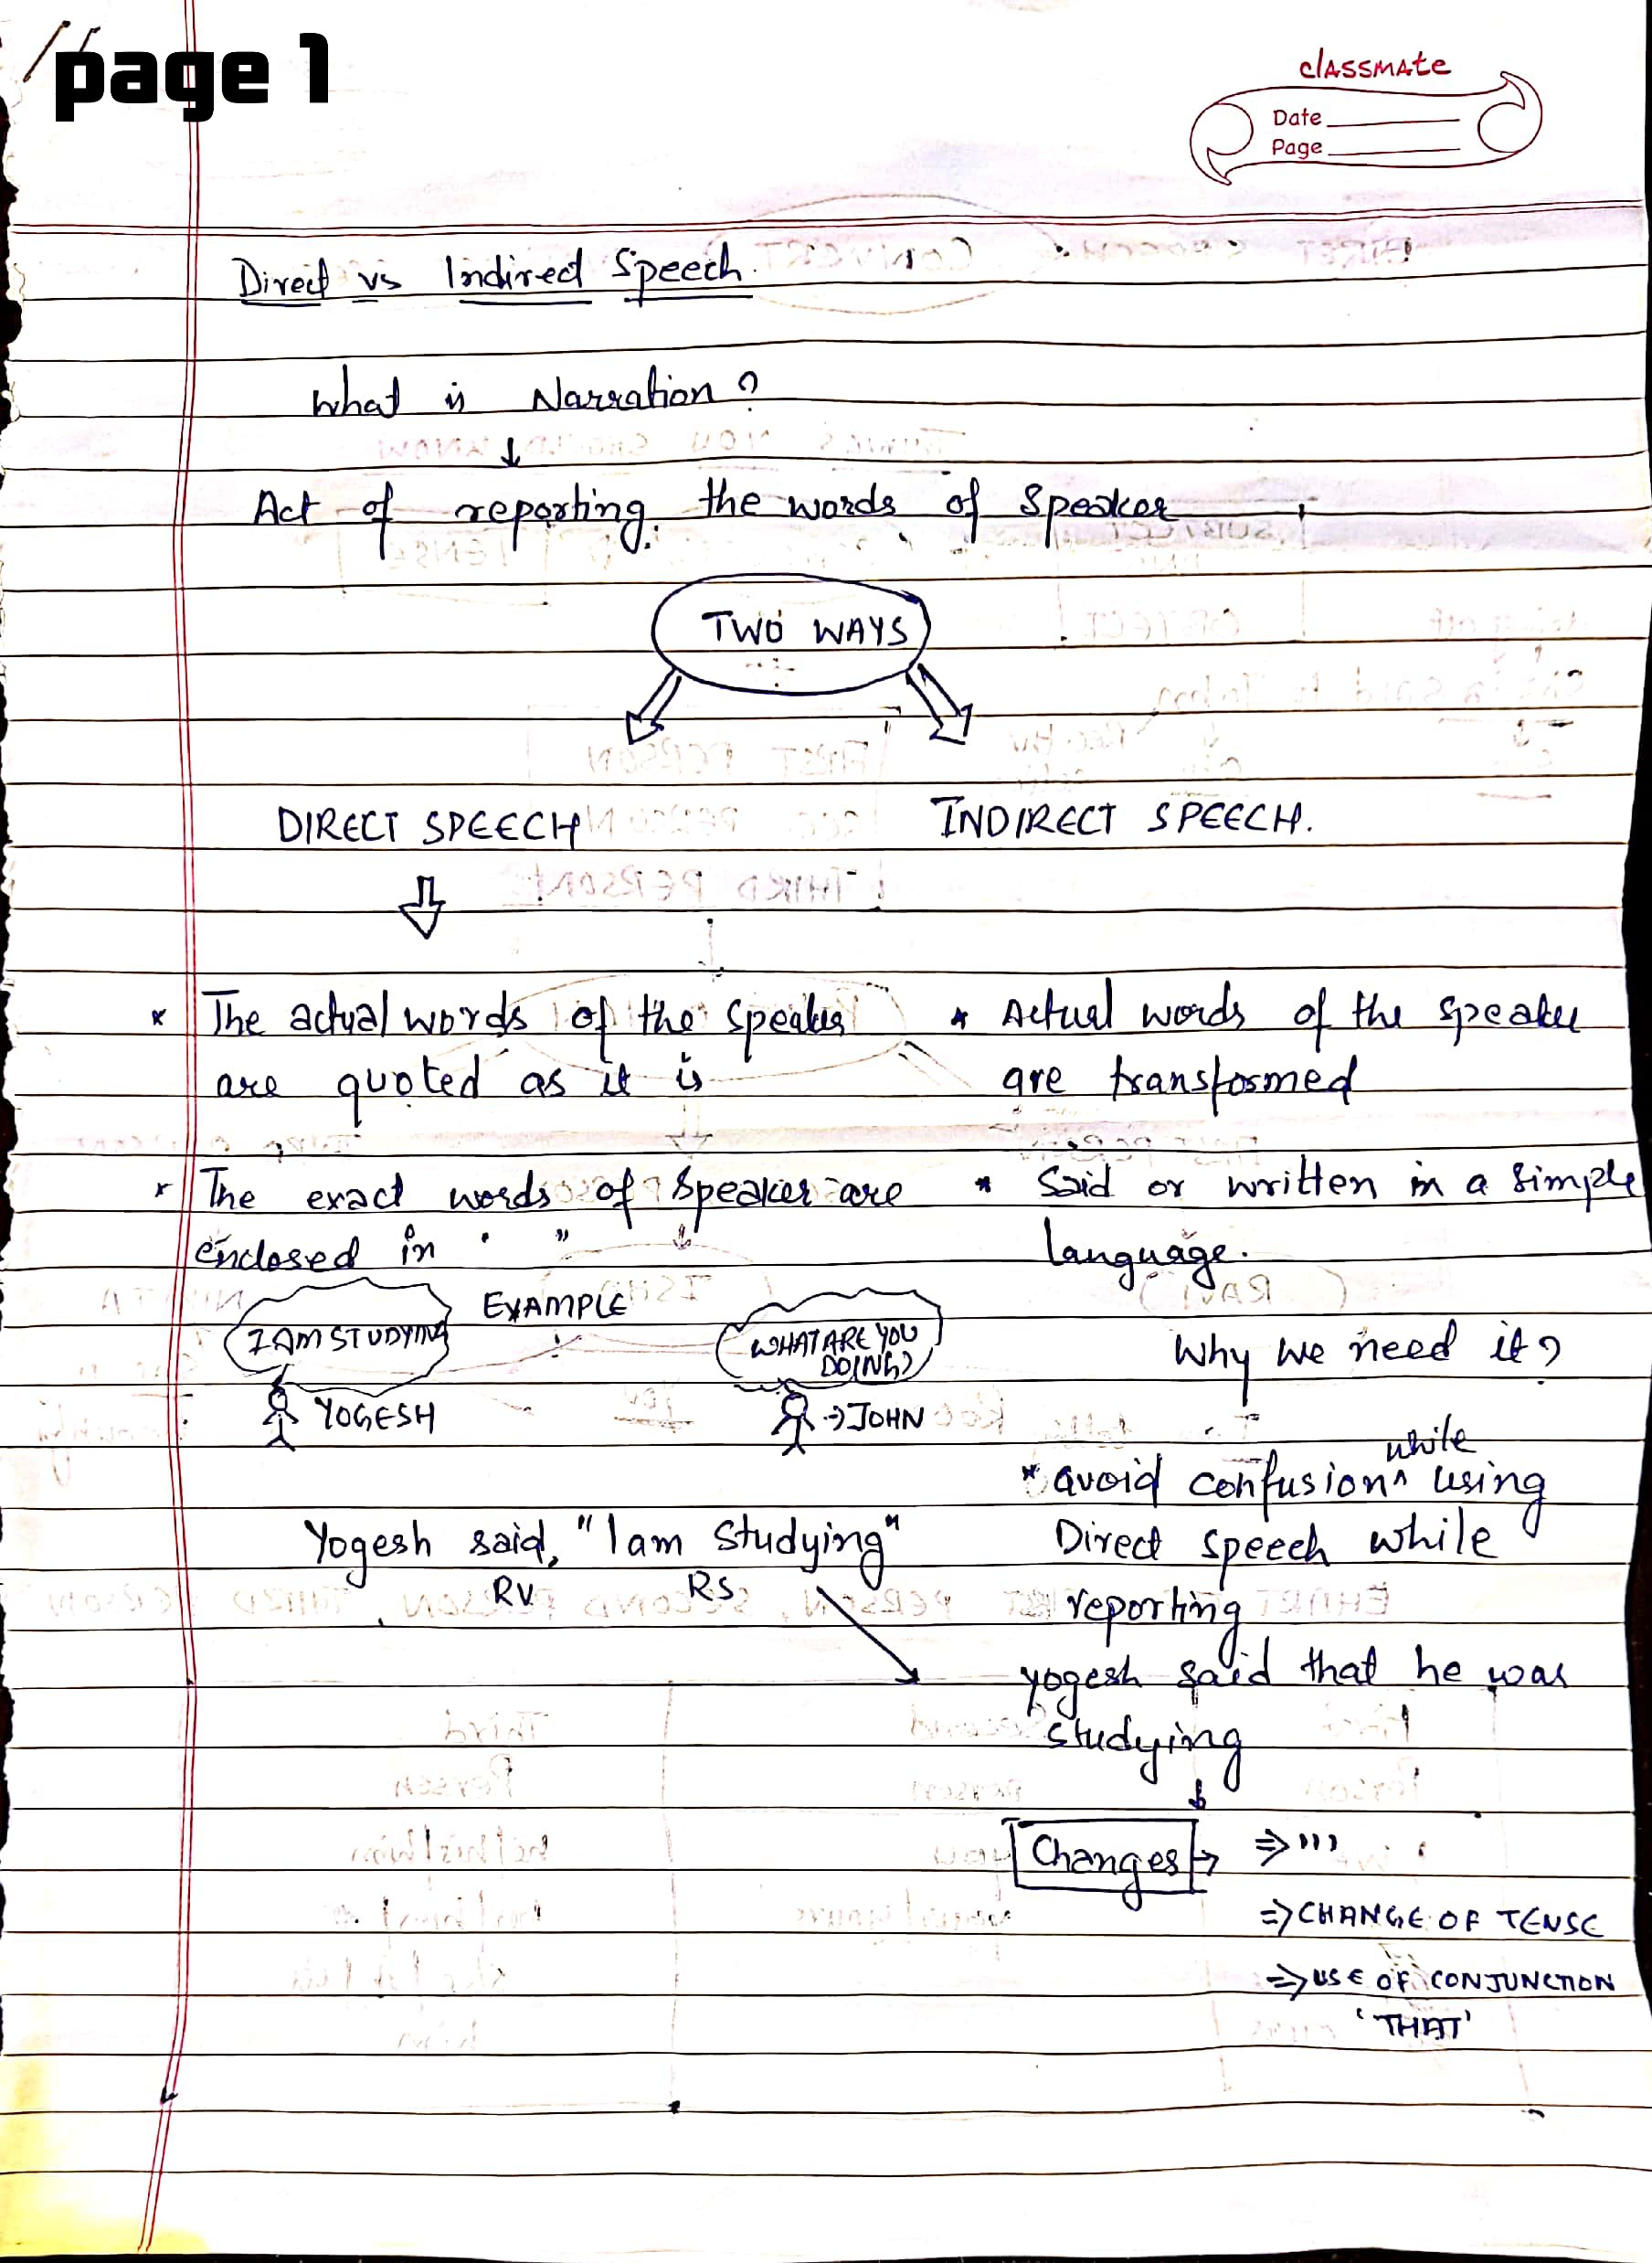 page 1
classmate
Date
Page
Direct vs Indirect Speech.
What is Narration?
Act of reporting the words of Speaker
TWO WAYS
DIRECT SPEECH
INDIRECT SPEECH.
* The actual words of the speaker
are quoted as it is
* The exact words of Speaker are
enclosed in " "
* Actual words of the speaker
are transformed
* Said or written in a simple
language.
EXAMPLE
I AM STUDYING
YOGESH
WHAT ARE YOU
DOING?
→ JOHN
Yogesh said, "I am Studying"
RV RS
Why we need it?
* avoid confusion ^ while using
Direct speech while
reporting
yogesh said that he was
studying
Changes → ⇒ " , "
⇒ CHANGE OF TENSE
⇒ USE OF CONJUNCTION
'THAT'